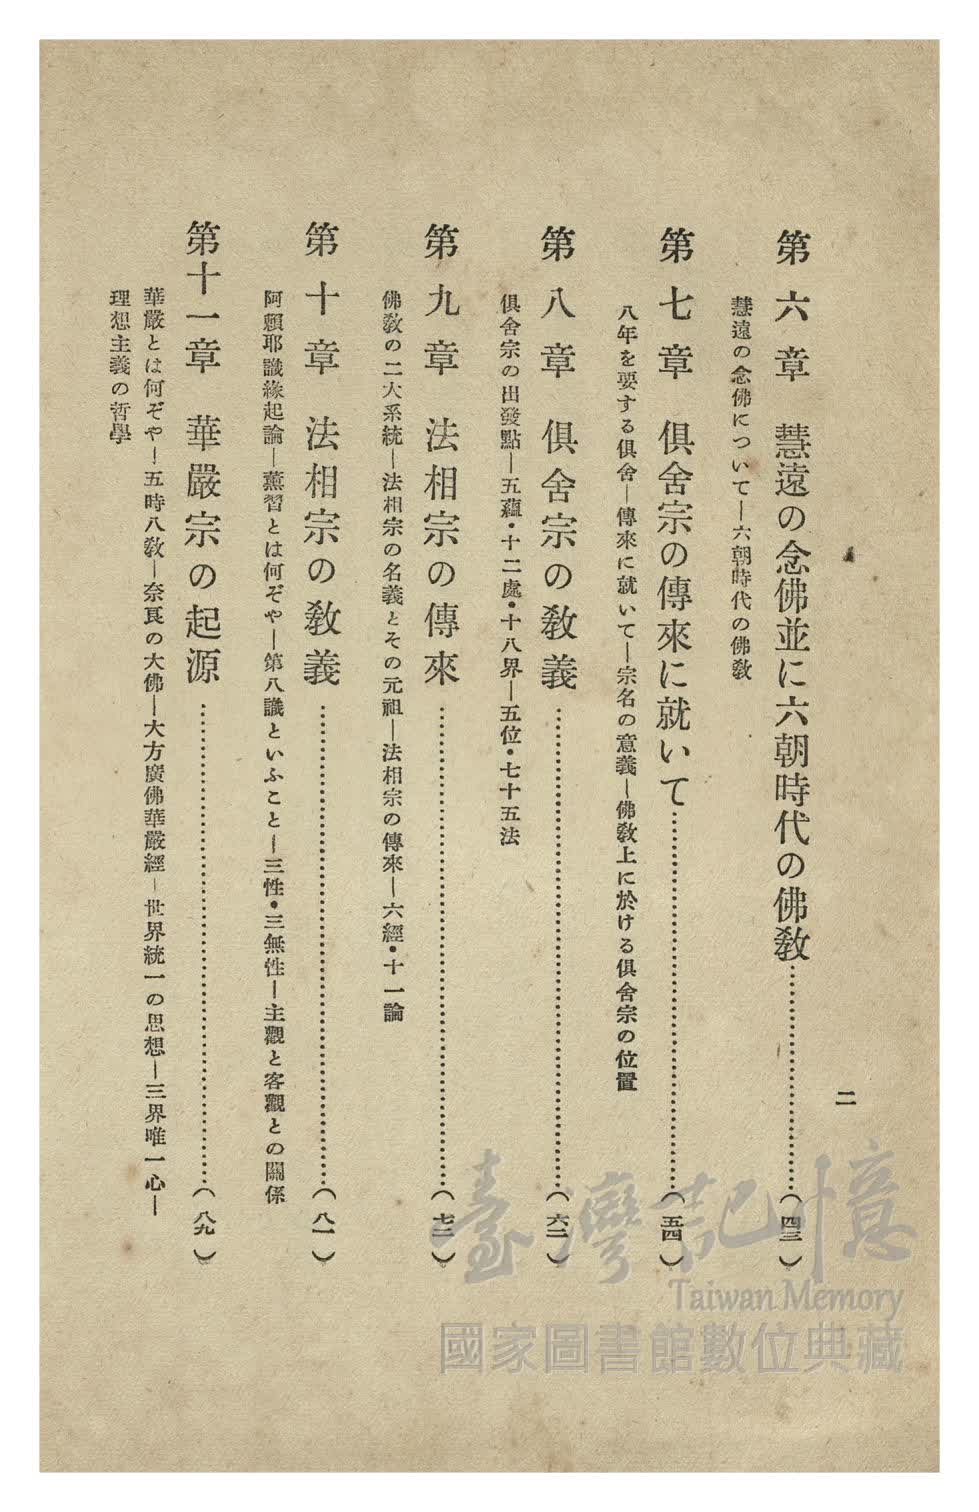 二
第六章　慧遠の念佛並に六朝時代の佛敎……………………(四三)
慧遠の念佛について―六朝時代の佛敎
第七章　俱舍宗の傳來に就いて……………………(五四)
八年を要する俱舍―傳來に就いて―宗名の意義―佛敎上に於ける俱舍宗の位置
第八章　俱舍宗の敎義……………………(六二)
俱舍宗の出發點―五蘊・十二處・十八界―五位・七十五法
第九章　法相宗の傳來……………………(七三)
佛敎の二大系統―法相宗の名義とその元祖―法相宗の傳來―六經・十一論
第十章　法相宗の敎義……………………(八一)
阿賴耶識緣起論―薰習とは何ぞや―第八識といふこと―三性・三無性―主觀と客觀との關係
第十一章　華嚴宗の起源……………………(八九)
華嚴とは何ぞや―五時八敎―奈良の大佛―大方廣佛華嚴經―世界統一の思想―三界唯一心―
理想主義の哲學
臺灣記憶
Taiwan Memory
國家圖書館數位典藏